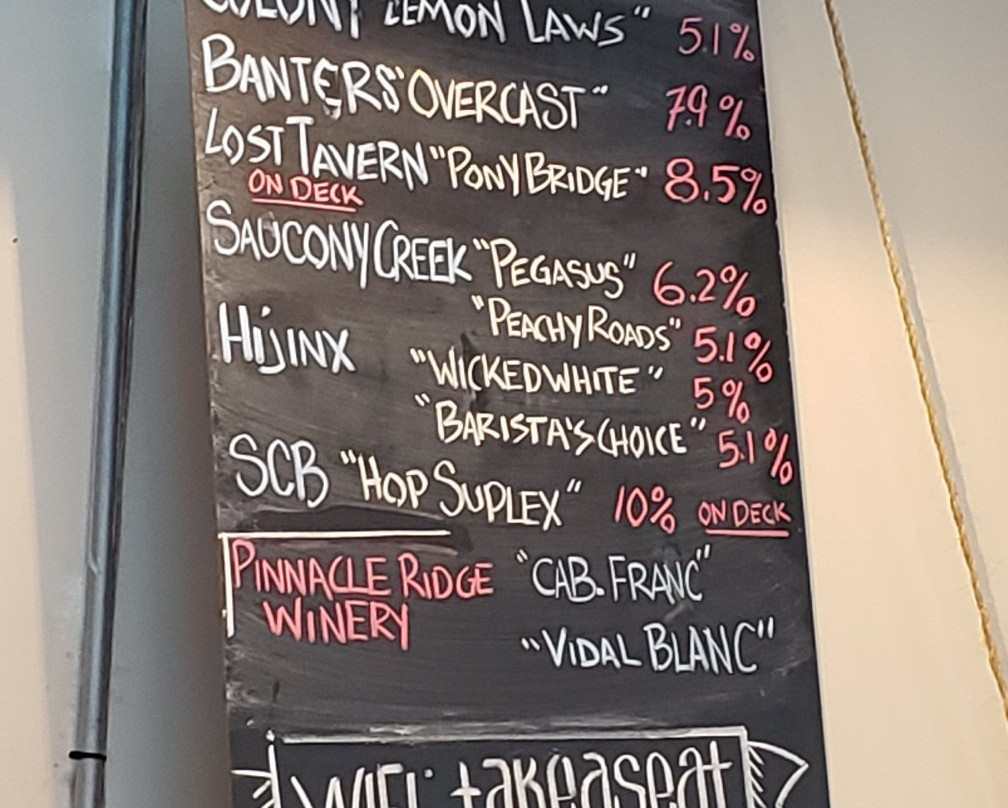 COLONY "LEMON LAWS" 5.1%
BANTERS "OVERCAST" 7.9%
LOST TAVERN "PONY BRIDGE" 8.5%
ON DECK
SAUCONY CREEK "PEGASUS" 6.2%
"PEACHY ROADS" 5.1%
HiJiNX "WICKED WHITE" 5%
"BARISTA'S CHOICE" 5.1%
SCB "HOP SUPLEX" 10% ON DECK
PINNACLE RIDGE "CAB. FRANC"
WINERY
"VIDAL BLANC"
WIFI: takeaseat